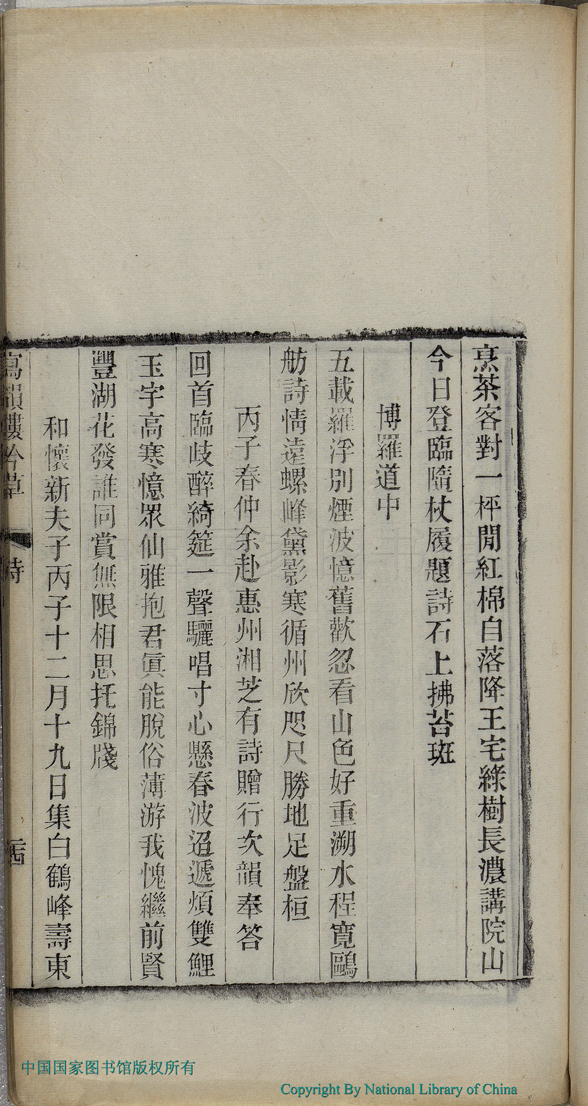 烹茶客對一枰閒紅棉自落降王宅綠樹長濃講院山
今日登臨隨杖履題詩石上拂苔斑
博羅道中
五載羅浮別煙波憶舊歡忽看山色好重溯水程寬鷗
舫詩情遠螺峰黛影寒循州欣咫尺勝地足盤桓
丙子春仲余赴惠州湘芝有詩贈行次韻奉答
回首臨歧醉綺筵一聲驪唱寸心懸春波迢遞煩雙鯉
玉宇高寒憶眾仙雅抱君眞能脫俗薄游我愧繼前賢
豐湖花發誰同賞無限相思托錦牋
和懷新夫子丙子十二月十九日集白鶴峰壽東
寫韻樓吟草
詩
中国国家图书馆版权所有
Copyright By National Library of China